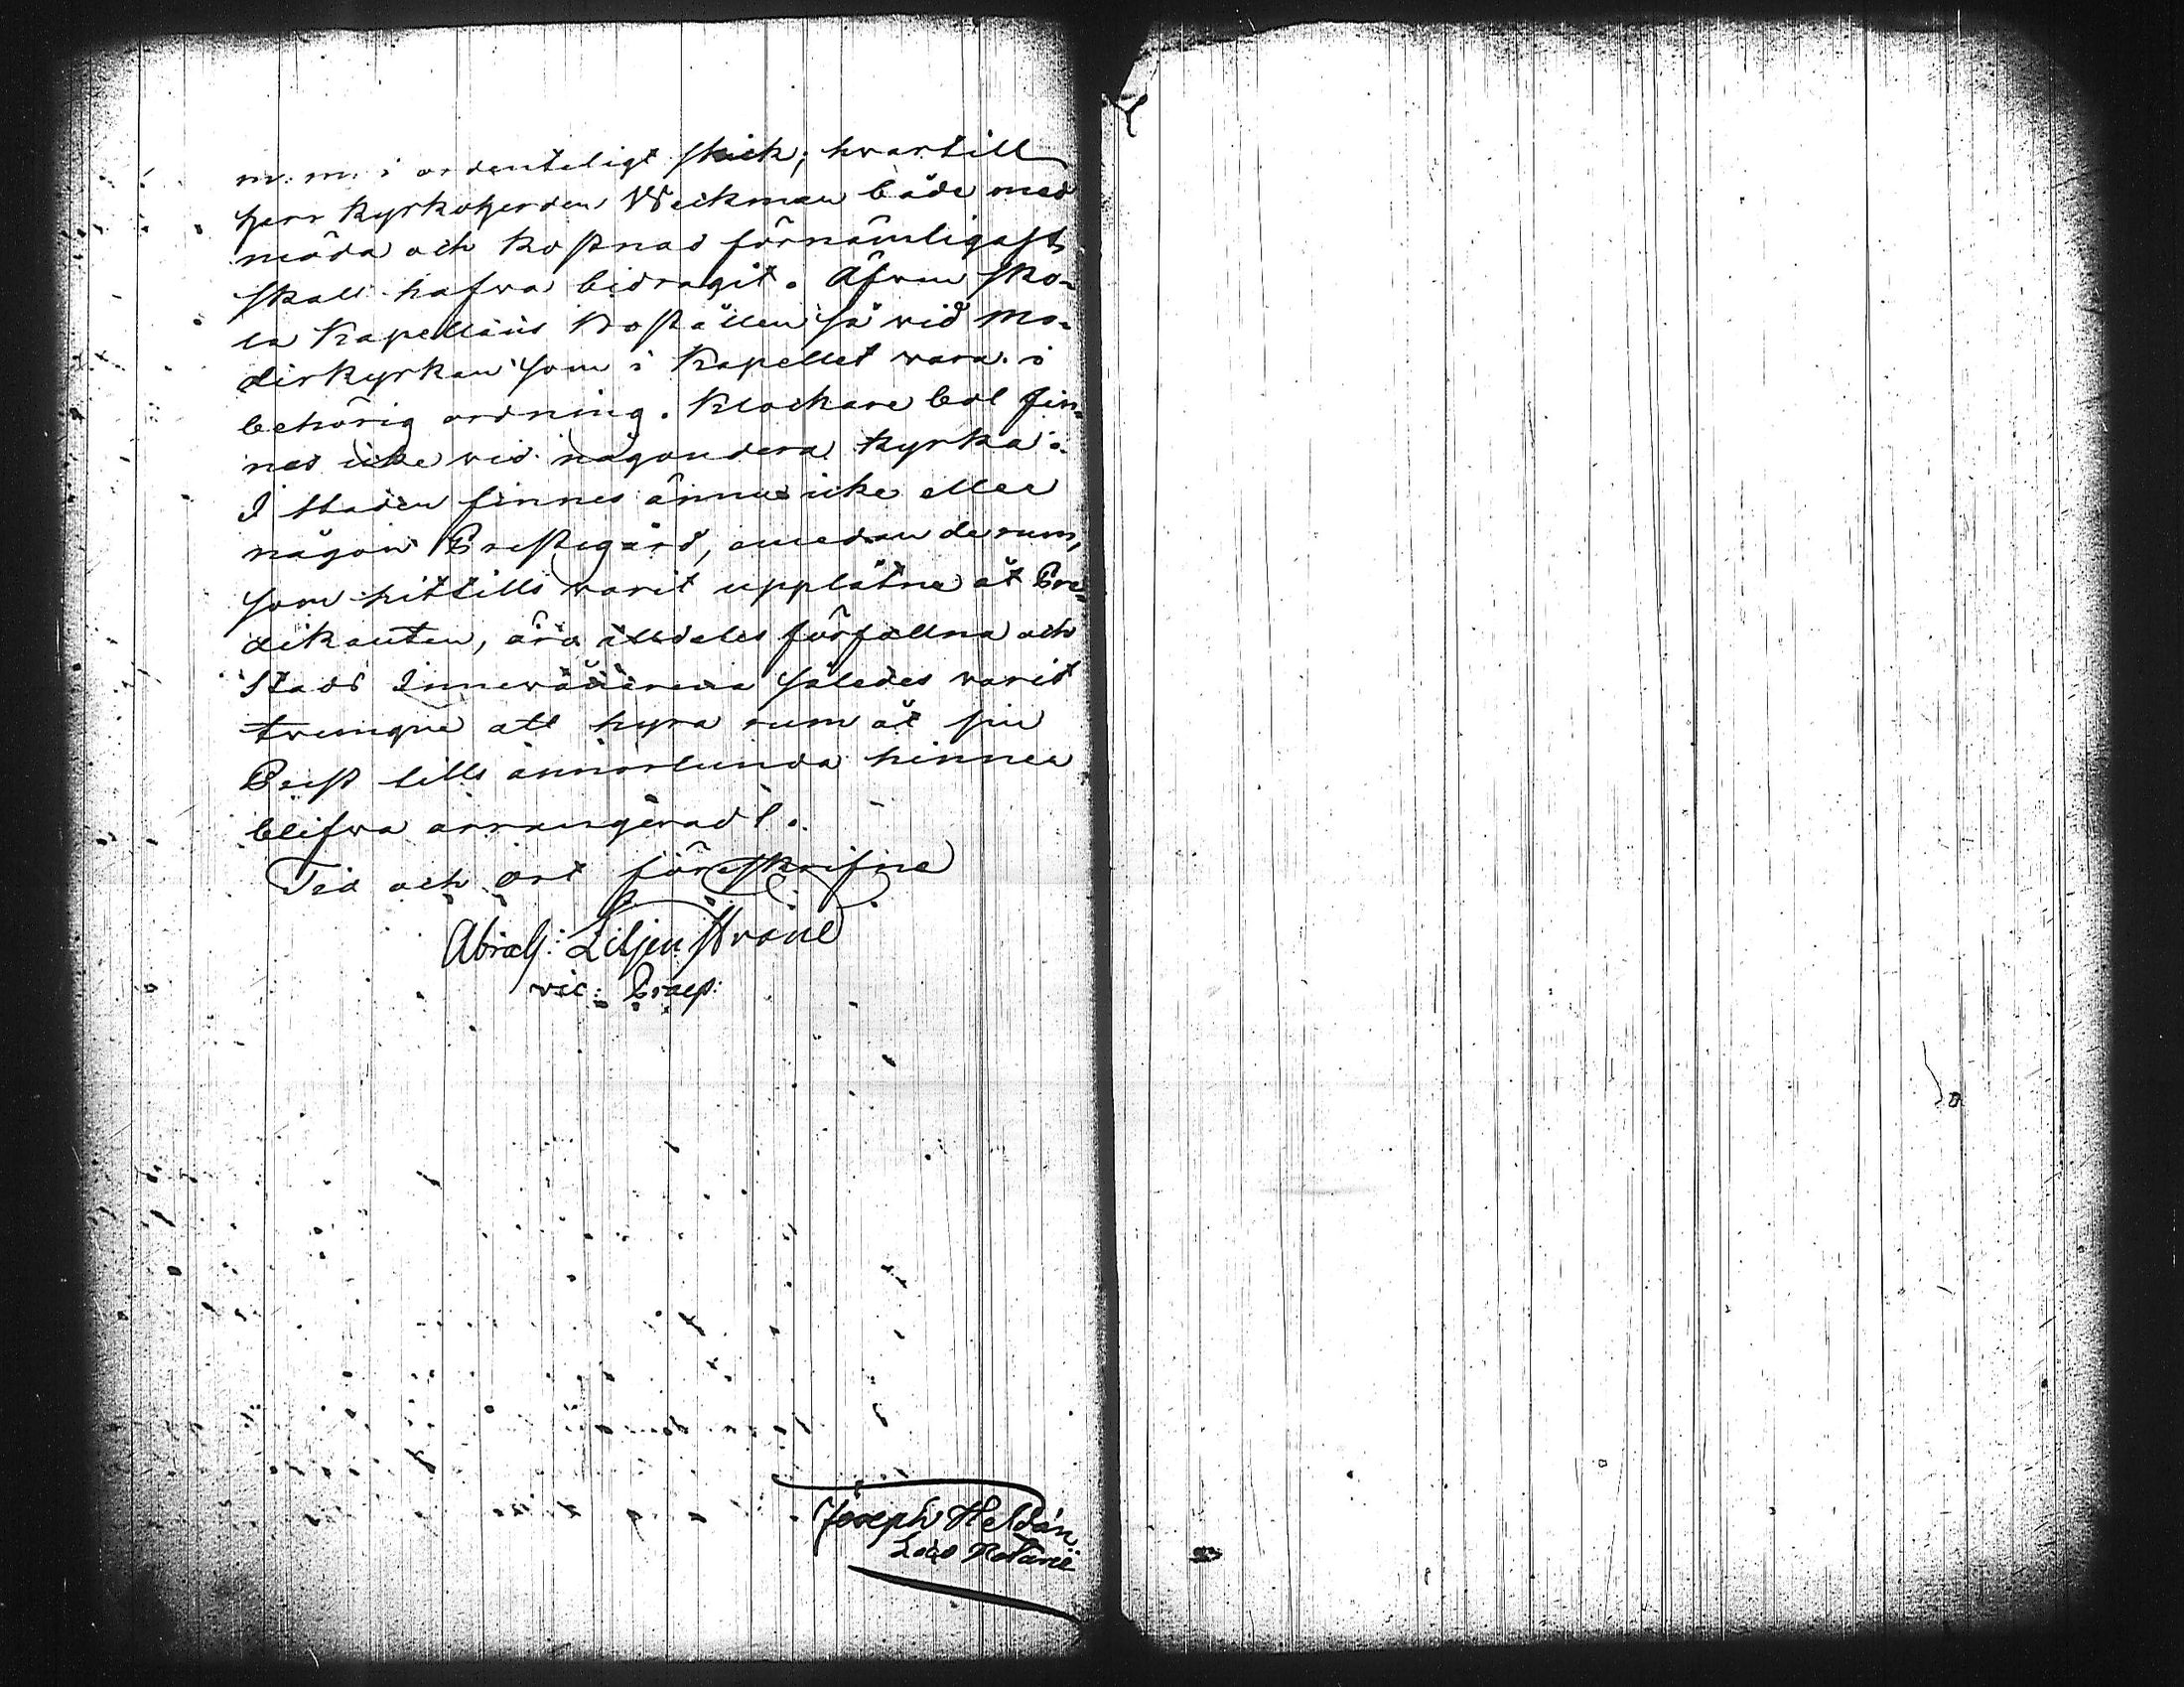 m. m. i ordenteligt skick; hvartill
Herr Kyrkoherden Weckman både med
möda och kostnad förnämligast
skall hafwa bidragit. Äfwen sko-
la Kapellans Boställen så wid Mo-
derkyrkan som i Kapellet wara i
behörig ordning. Klockare bol fin-
nes icke wid någondera kyrka.
I Staden finnes ännu icke eller
någon Prestegård, emedan de rum,
som hittills warit upplåtne åt Pre-
dikanten, äro alldeles förfallna och
Stads Innewånarena således warit
twungne att hyra rum åt sin
Prest tills annorlunda hinner
blifwa arrangeradt.
Tid och ort förskrifne
Abrah: Liljenstrand
vic: Praep:
Joseph Heldán
Loco Notarii